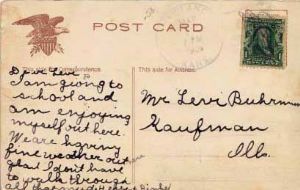 POST CARD
This side for Correspondence
This side for Address.
Dear Levi
I am going to
school and
am enjoying
myself out here.
We are having
fine weather out here
glad I don't have
to walk through
all that mud
Mr Levi Buhrman
Kaufman
Ills.